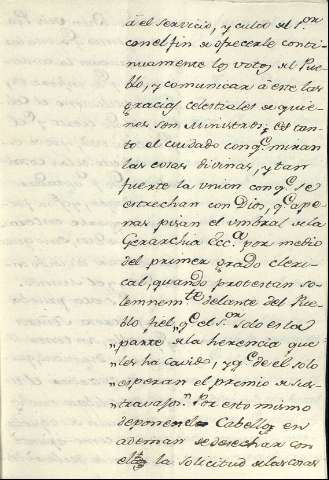 á el servicio, y culto del S.or
con el fin de ofrecerle contin
nuamente los votos del Pue-
blo, y comunicar á este las
gracias celestiales de quie-
nes son Ministros; es tan-
to el cuidado con q.e miran
las cosas divinas, y tan
fuerte la union con q.e se
estrechan con Dios, q.e ape-
nas pisan el umbral de la
Gerarchia Ecc.a por medio
del primer grado cleri-
cal, quando protestan so-
lemnem.te delante del Pue-
blo fiel, "q.e el S.or solo es la
"parte de la herencia que
"les ha cavido, y q.e de el solo
"esperan el premio de sus
"travajos." Por esto mismo
deponen el Cabello en
ademan de desechar con
el la solicitud de las cosas